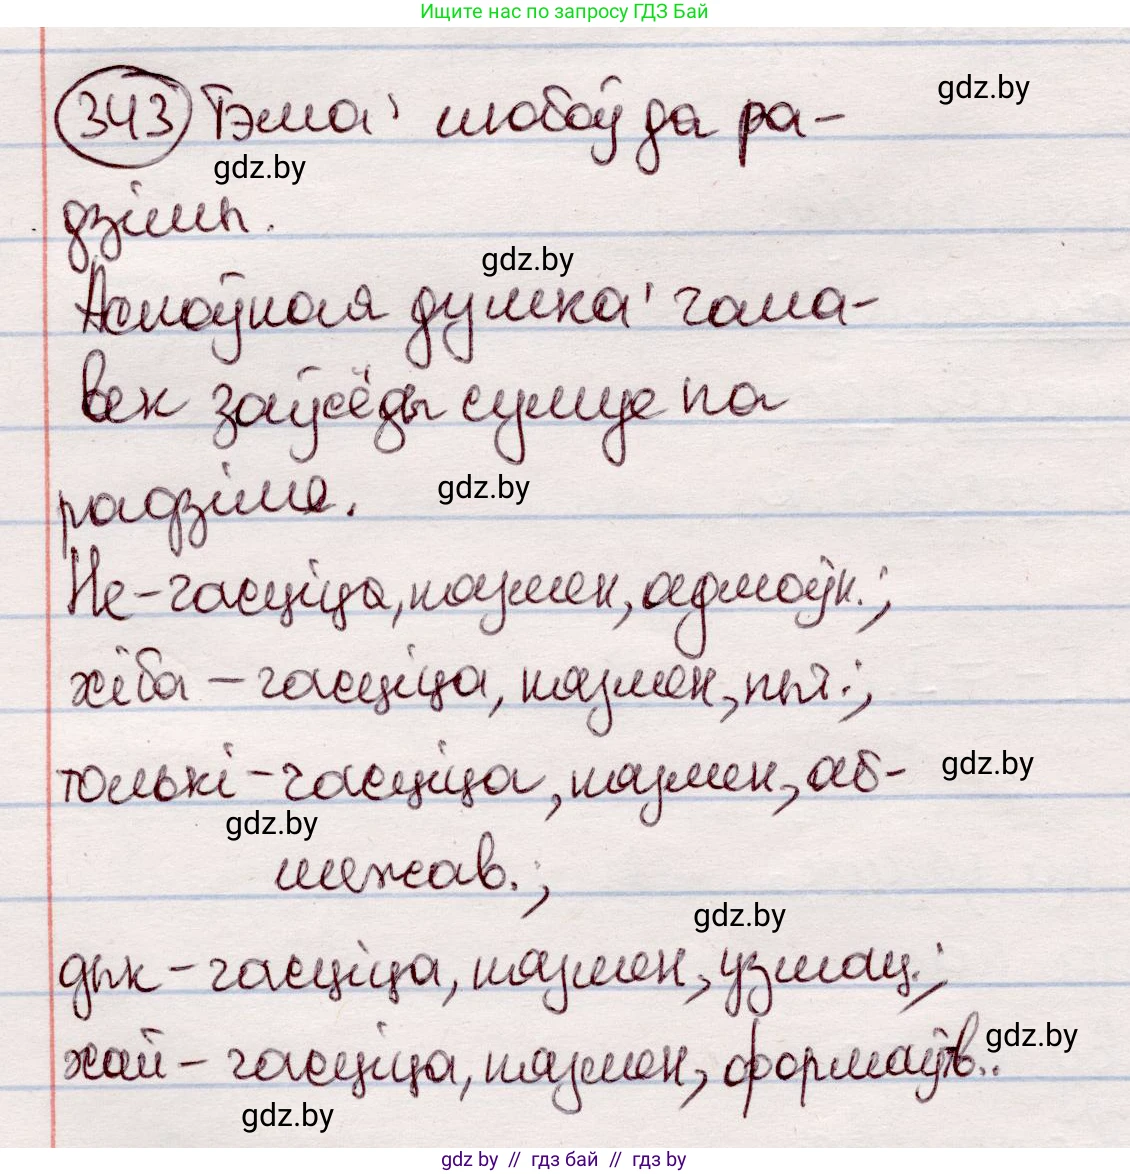 Ищите нас по запросу ГДЗ Бай
343 Тэма: любоў да ра-
gdz.by
gdz.by
дзімы.
gdz.by
Асноўная думка: чала-
век заўсёды сумуе па
радзіме.
gdz.by
Не - часціца, няумен, адмоўн.;
хіба - часціца, няумен, пыт.;
толькі - часціца, няумен, аб-
gdz.by
gdz.by
межав.;
gdz.by
дык - часціца, няумен, узмац.;
хай - часціца, няумен, формаўтв..
gdz.by
gdz.by
gdz by // гдз бай // гдз by